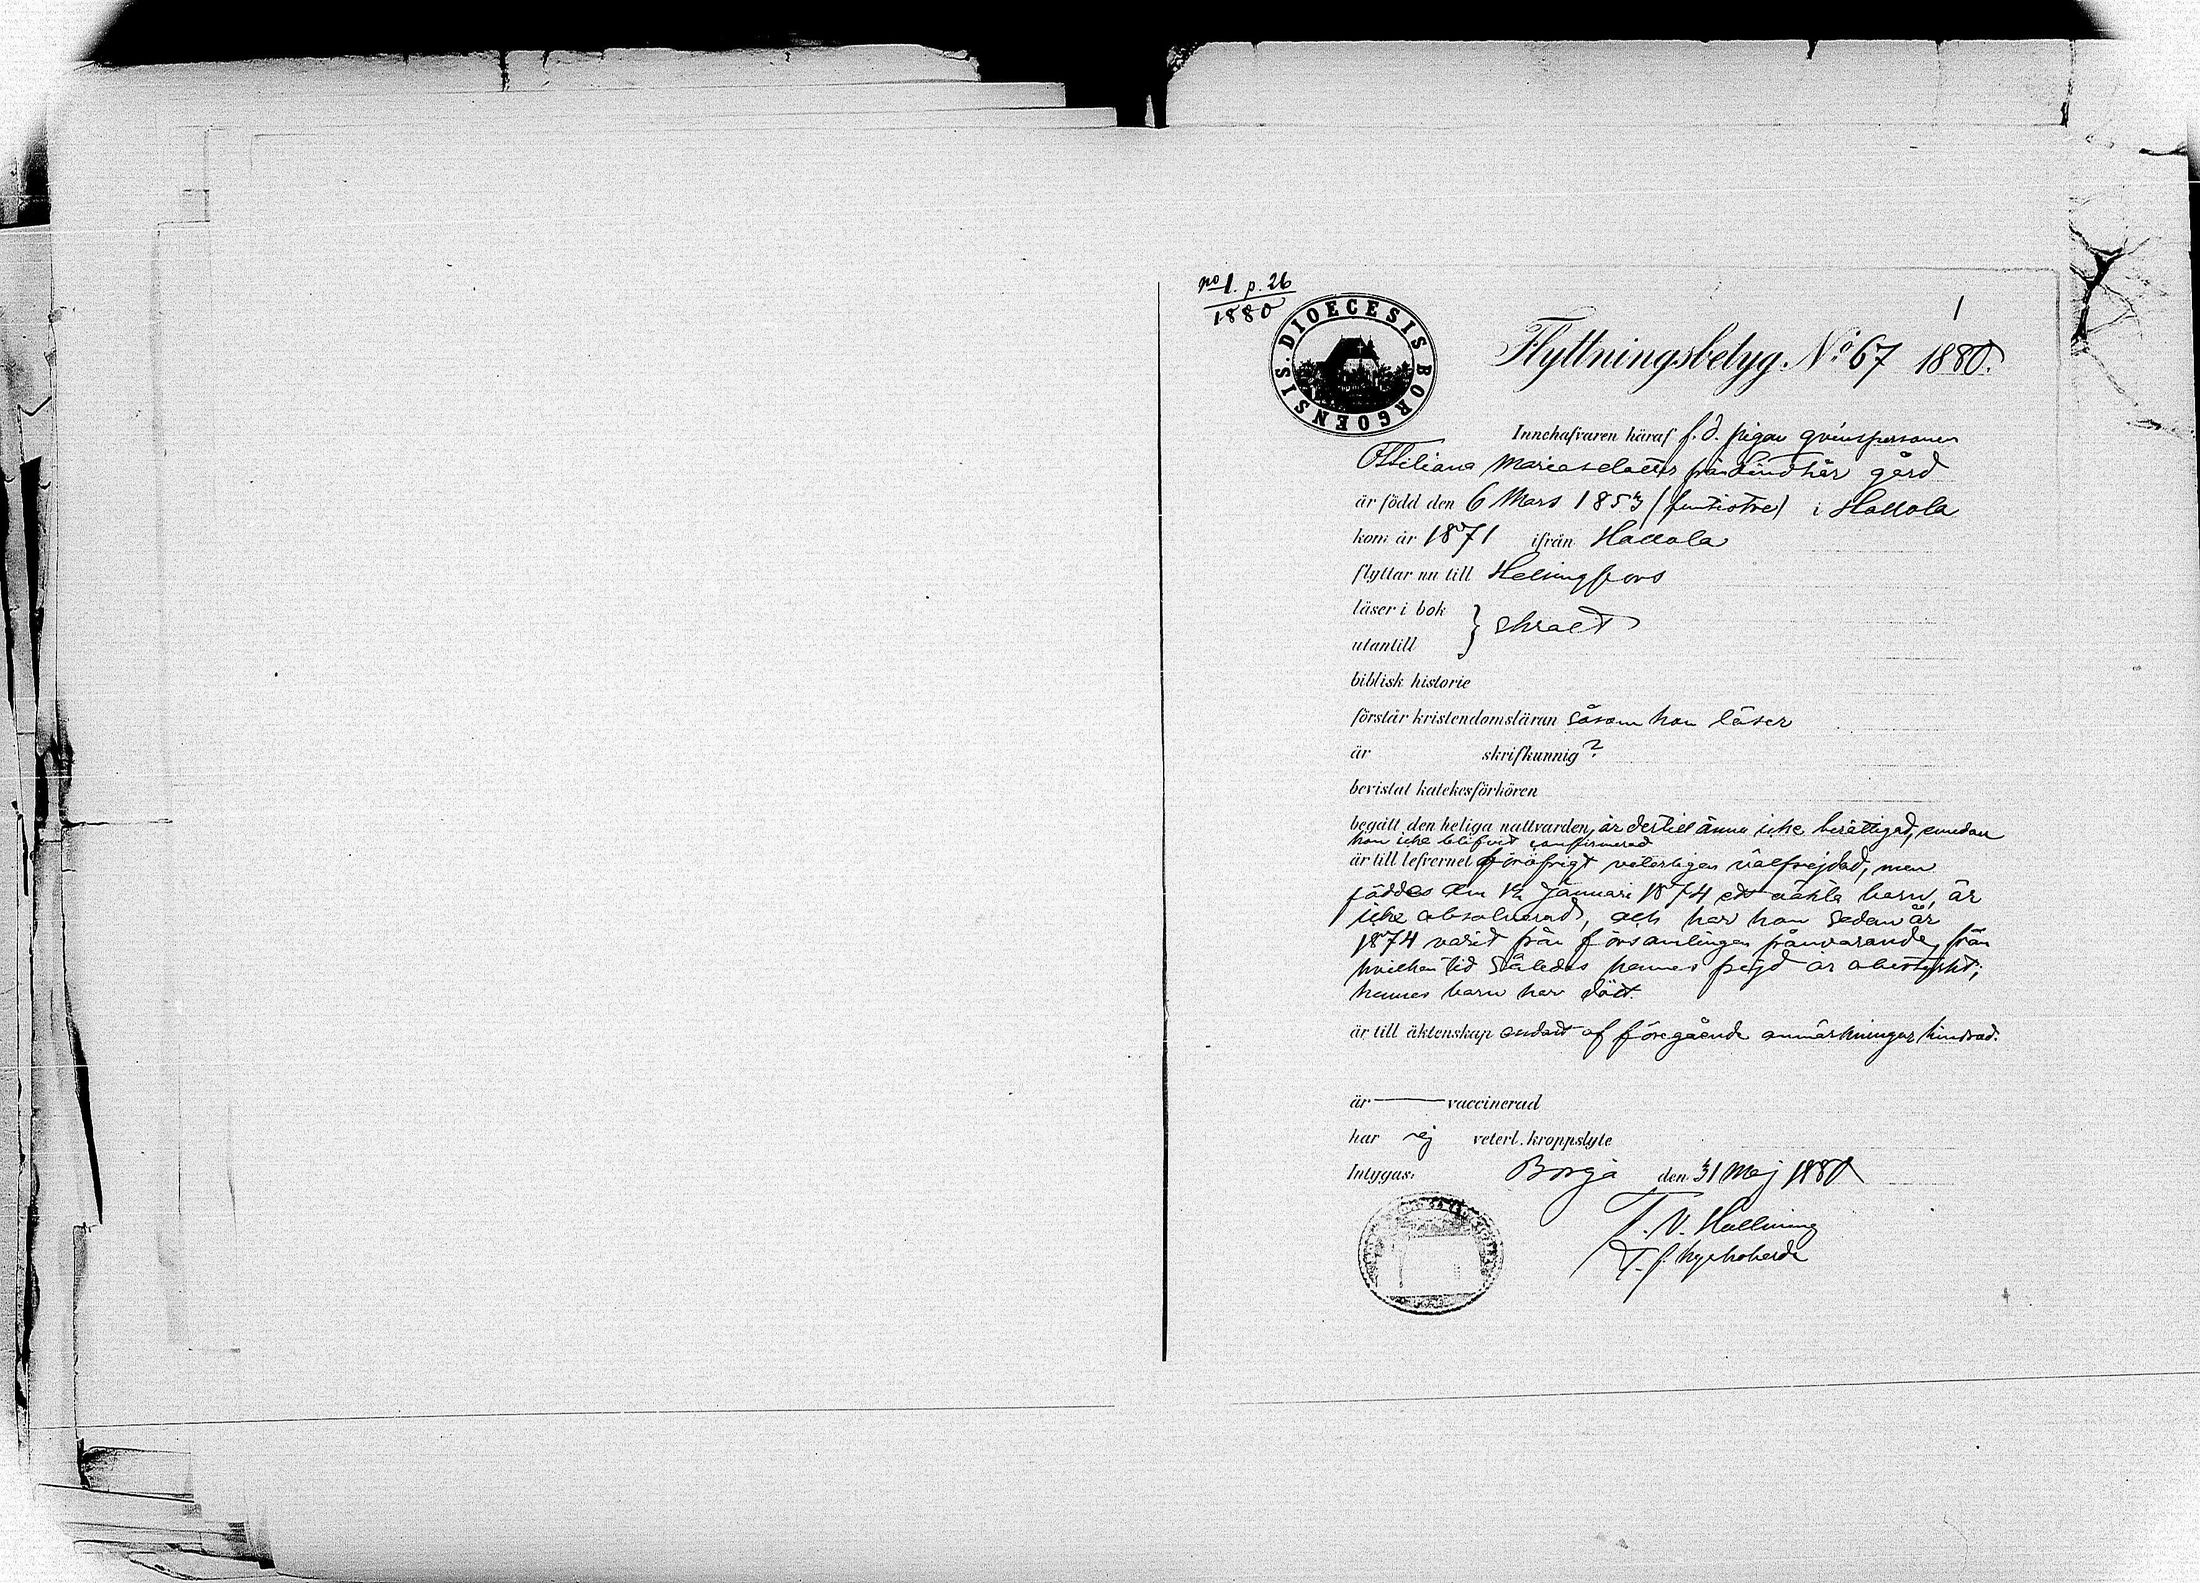 no 1. p. 26
1880
DIOECESIS BORGOENSIS.
1
Flyttningsbetyg. No 67 1880.
Innehafvaren häraf f. d. pigan qvinspersonen
Ottiliana Mariasdotter från Lindhär gård
är född den 6 Mars 1853 (femtiotre) i Hollola
kom år 1871 ifrån Hollola
flyttar nu till Helsingfors
läser i bok
utantill } svalt
biblisk historie
förstår kristendomsläran såsom hon läser
är skrifkunnig ?
bevistat katekesförhören
begått den heliga nattvarden, är dertill ännu icke berättigad, emedan
hon icke blifvit confirmerad
är till lefvernet föröfrigt veterligen välfrejdad, men
föddes den 12 Januari 1874 ett oäkta barn, är
icke absolverad, och har hon sedan år
1874 varit från församlingen frånvarande, från
hvilken tid således hennes frejd är obestyrkt;
hennes barn har dött.
är till äktenskap endast af föregående anmärkningar hindrad.
är — vaccinerad
har ej veterl. kroppslyte
Intygas. Borgå den 31 Maj 1880
T. f. kyrkoherde